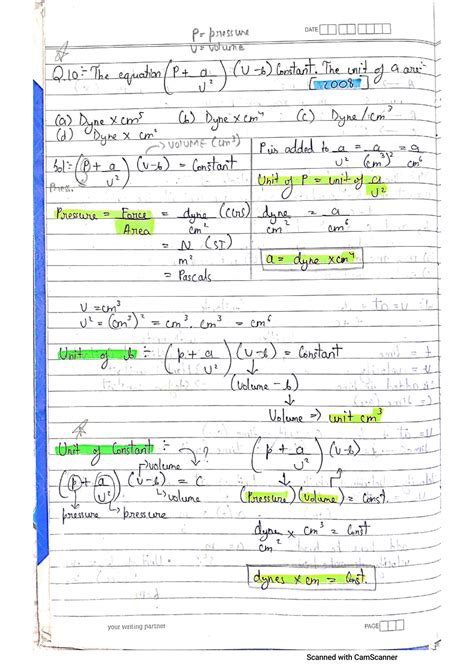 P = pressure
V = volume
DATE
Q.10:- The equation (P + a/V²) (V-b) Constant. The unit of a are:-
2008
(a) Dyne x cm⁵ (b) Dyne x cm⁴ (c) Dyne / cm³
(d) Dyne x cm²
→ VOLUME (cm³)
Sol:- (P + a/V²) (V-b) = Constant
Press.
P is added to a/V² = a/(cm³)² = a/cm⁶
Unit of P = unit of a/V²
Pressure = Force/Area = dyne/cm² (CGS)
= N/m² (SI)
= Pascals
dyne/cm² = a/cm⁶
a = dyne x cm⁴
V = cm³
V² = (cm³)² = cm³. cm³ = cm⁶
Unit of b :- (P + a/V²) (V-b) = Constant
(Volume - b)
Volume => unit cm³
Unit of Constant :-
→ volume ?
(P + a/V²) (V-b) = C
→ volume
pressure → pressure
(P + a/V²) (V-b)
(Pressure) (volume) = Const.
dyne/cm² x cm³ = Const
dynes x cm = Const.
your writing partner
PAGE
Scanned with CamScanner